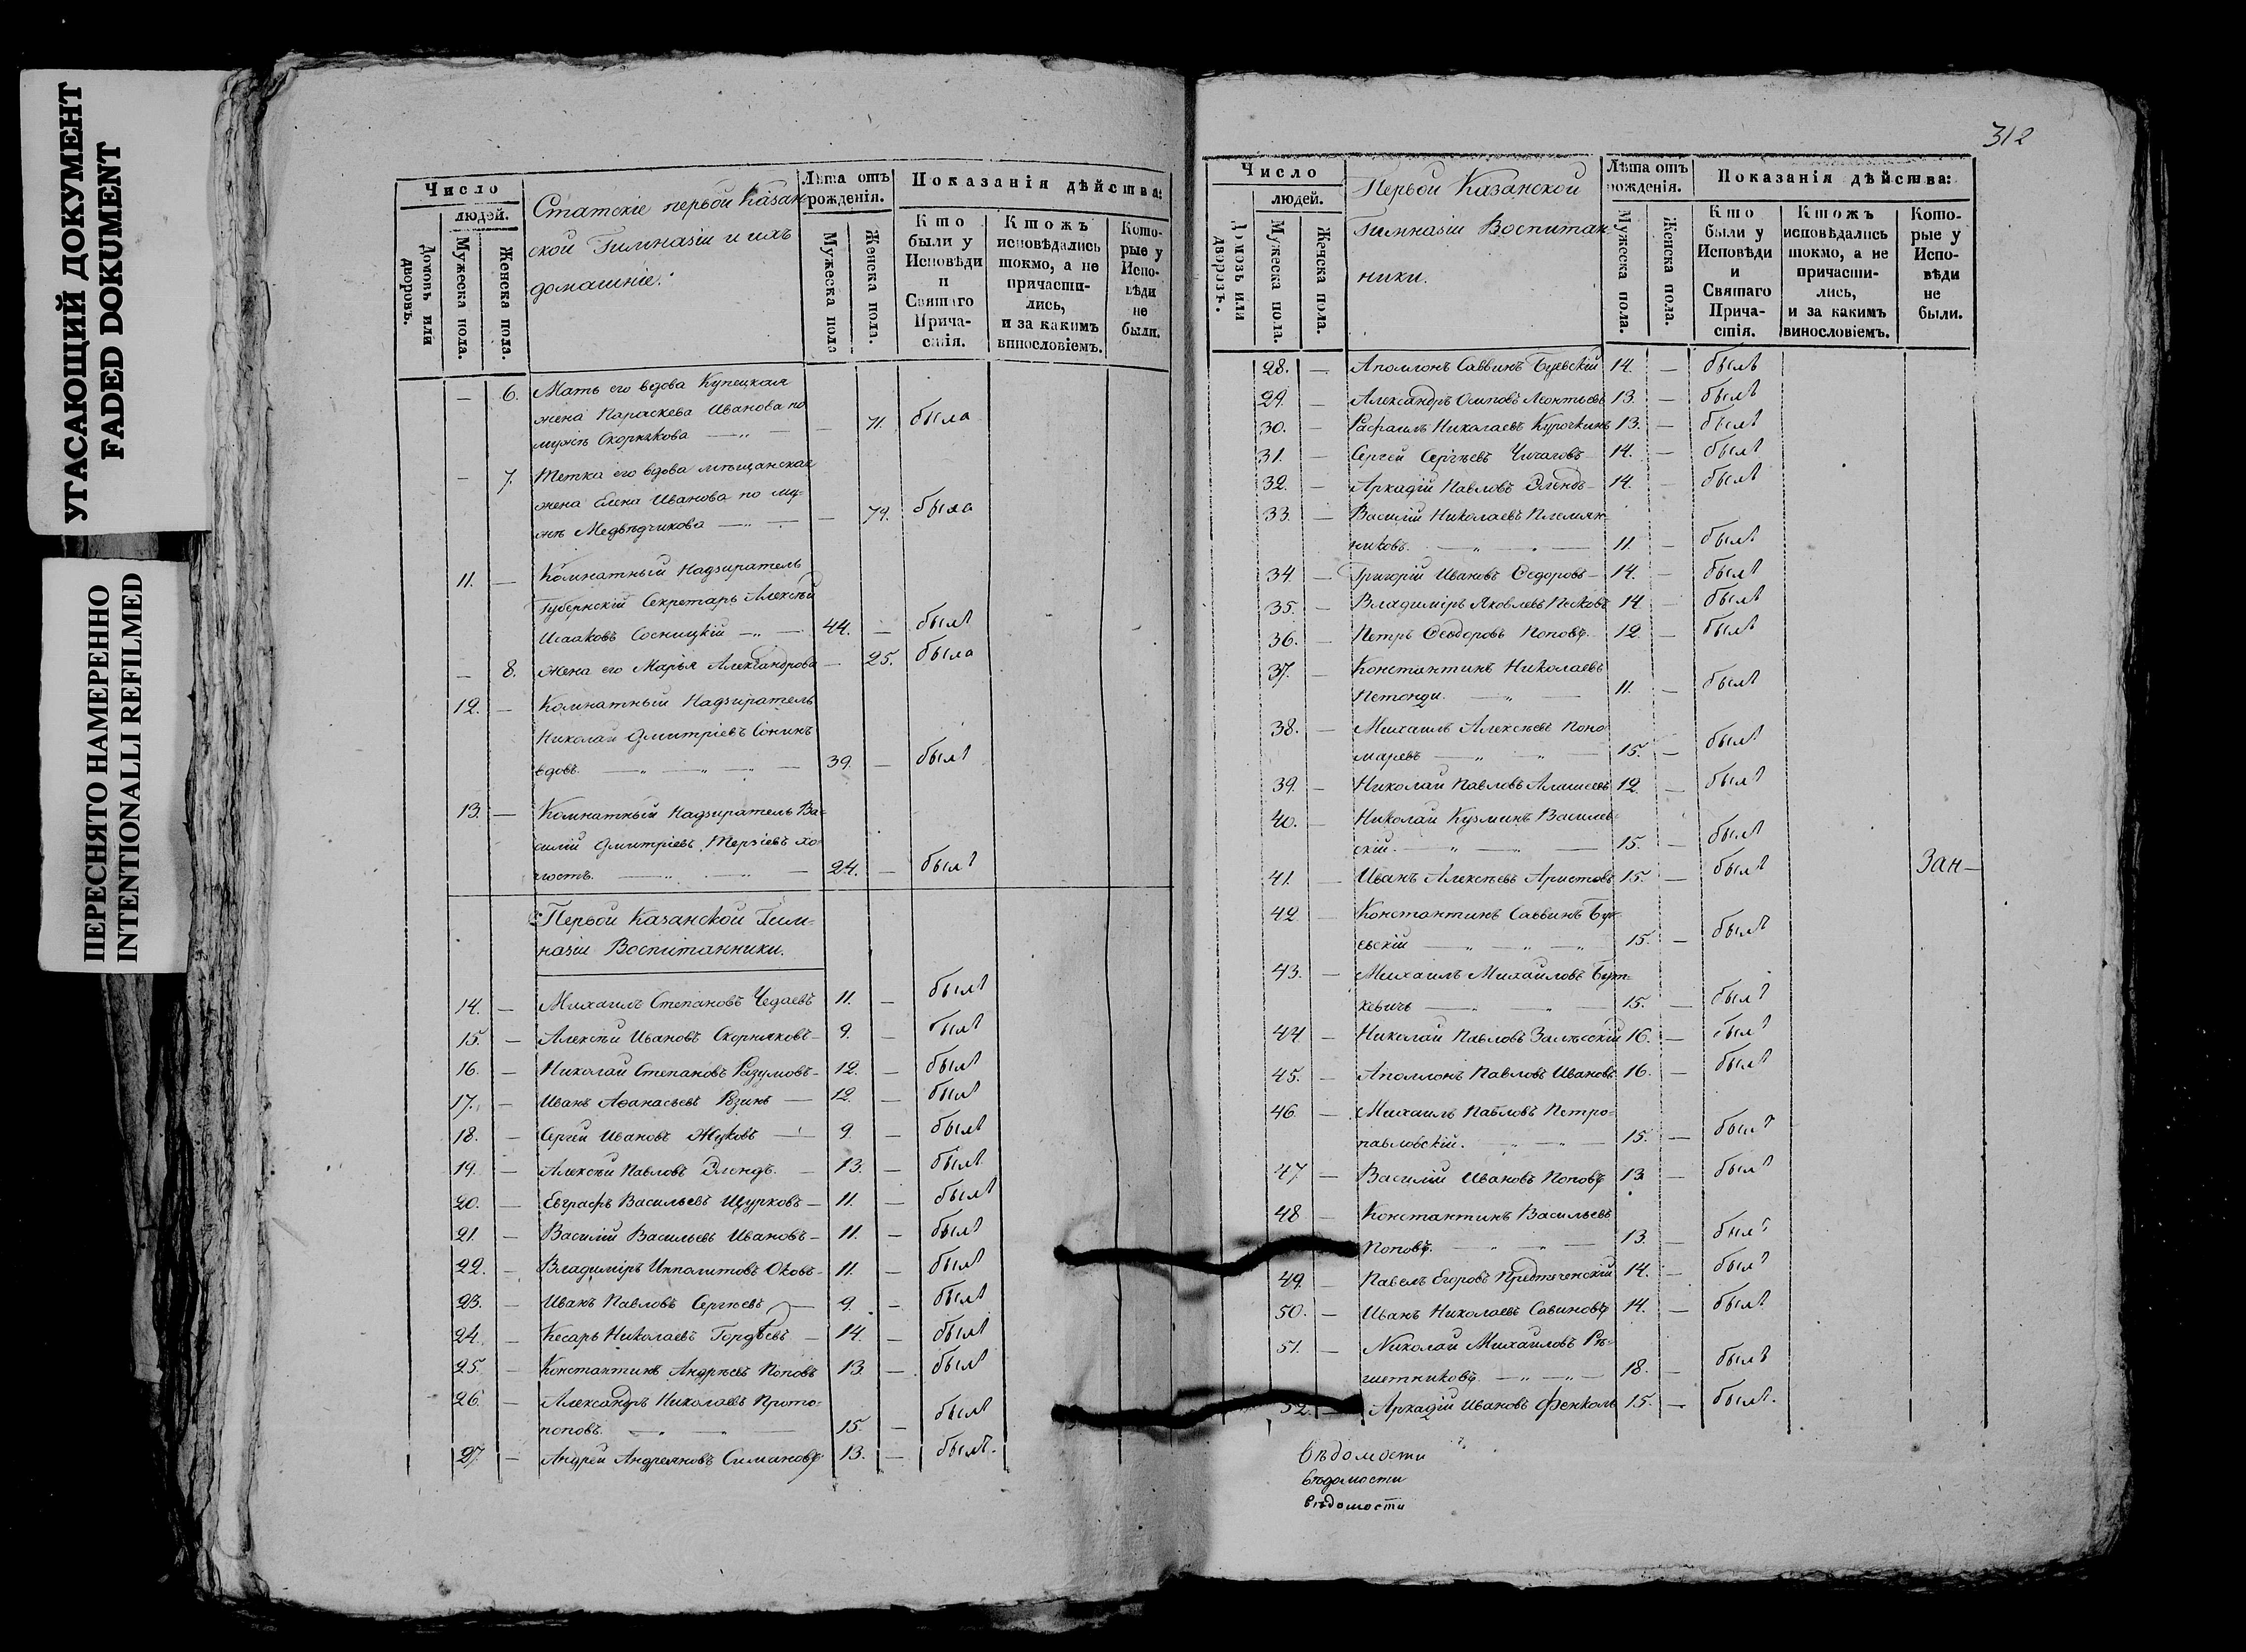 УТАСАЮЩИЙ ДОКУМЕНТ
FADED DOKUMENT
ПЕРЕСНЯТО НАМЕРЕННО
INTENTIONALLI REFILMED
Число
людей.
Домовъ или дворовъ.
Мужеска пола.
Женска пола.
Статскіе первой Казан-
ской Гимназіи и ихъ
домашніе:
Лѣта отъ рожденія.
Мужеска пола
Женска пола.
Показанія дѣйства:
Кто были у Исповѣди и Святаго Прича-стія.
Ктожъ исповѣдались токмо, а не причасти-лись, и за какимъ винословіемъ.
Кото-рые у Испо-вѣди не были.
— 6. Мать его вдова Купецкая
жена Параскева Иванова по
мужѣ Скорнякова — 71. была
— 7. Тетка его вдова мѣщанская
жена Елена Иванова по му-
жѣ Медвѣдчикова — 79. была
11. — Комнатный Надзиратель
Губернскій Секретарь Алексѣй
Исааковъ Сосницкій 44. — былъ
— 8. Жена его Марья Александрова — 25. была
12. — Комнатный Надзиратель
Николай Дмитріевъ Сонинъ
вдовъ. 39. — былъ
13. — Комнатный Надзиратель Ва-
силій Дмитріевъ Терзіевъ хо-
лостъ. 24. — былъ
Первой Казанской Гим-
назіи Воспитанники.
14. — Михаилъ Степановъ Чедаевъ 11. — былъ
15. — Алексѣй Ивановъ Скорняковъ 9. — былъ
16. — Николай Степановъ Разумовъ 12. — былъ
17. — Иванъ Аѳанасьевъ Розинъ 12 — былъ
18. — Сергей Ивановъ Жуковъ 9. — былъ
19. — Алексѣй Павловъ Элендъ. 13. — былъ
20. — Евграфъ Васильевъ Щурковъ 11. — былъ
21. — Василій Васильевъ Ивановъ 11. — былъ
22. — Владиміръ Ипполитовъ Оковъ 11. — былъ
23. — Иванъ Павловъ Сергѣевъ 9. — былъ
24. — Кесарь Николаевъ Гордѣевъ 14. — былъ
25. — Константинъ Андрѣевъ Поповъ 13 — былъ
26. — Александръ Николаевъ Прото-
поповъ. 15. — былъ
27 — Андрей Андреяновъ Симановъ 13. — былъ.
312
Число
людей.
Домовъ или дворовъ.
Мужеска пола.
Женска пола.
Первой Казанской
Гимназіи Воспитан-
ники.
Лѣта отъ рожденія.
Мужеска пола.
Женска пола.
Показанія дѣйства:
Кто были у Исповѣди и Святаго Прича-стія.
Ктожъ исповѣдались токмо, а не причасти-лись, и за какимъ винословіемъ.
Кото-рые у Испо-вѣди не были.
28. — Аполлонъ Саввинъ Буевскій 14. — былъ
29. — Александръ Осиповъ Леонтьевъ 13. — былъ
30. — Рафаилъ Николаевъ Курочкинъ 13. — былъ
31. — Сергей Сергѣевъ Чичаговъ 14. — былъ
32. — Аркадій Павловъ Элендъ 14. — былъ
33. — Василій Николаевъ Племян-
никовъ. 11. — былъ
34. — Григорій Ивановъ Ѳедоровъ 14. — былъ
35. — Владиміръ Яковлевъ Песковъ 14 — былъ
36. — Петръ Ѳеодоровъ Поповъ. 12. — былъ
37. — Константинъ Николаевъ
Петонди. 11. — былъ
38. — Михаилъ Алексѣевъ Поно-
маревъ 15. — былъ
39. — Николай Павловъ 12. — былъ
40. — Николай Кузминъ Василев-
скій. 15. — былъ
41. — Иванъ Алексѣевъ Аристовъ 15. — былъ Зан—
42 — Константинъ Саввинъ Бу-
евскій 15. — былъ
43. — Михаилъ Михайловъ Бут-
кевичь 15. — былъ
44 — Николай Павловъ Залѣсскій 16. — былъ
45. — Аполлонъ Павловъ Ивановъ 16. — былъ
46 — Михаилъ Павловъ Петро-
павловскій. 15. — былъ
47 — Василій Ивановъ Поповъ 13 — былъ
48 — Константинъ Васильевъ
Поповъ. 13. — былъ
49. — Павелъ Егоровъ Предтеченскій 14. — былъ
50. — Иванъ Николаевъ Савиновъ 14. — былъ
51. — Николай Михайловъ Рѣ-
шетниковъ. 18. — былъ
52. — Аркадій Ивановъ Фенколь 15. — былъ.
вѣдомости
вѣдомости
вѣдомости